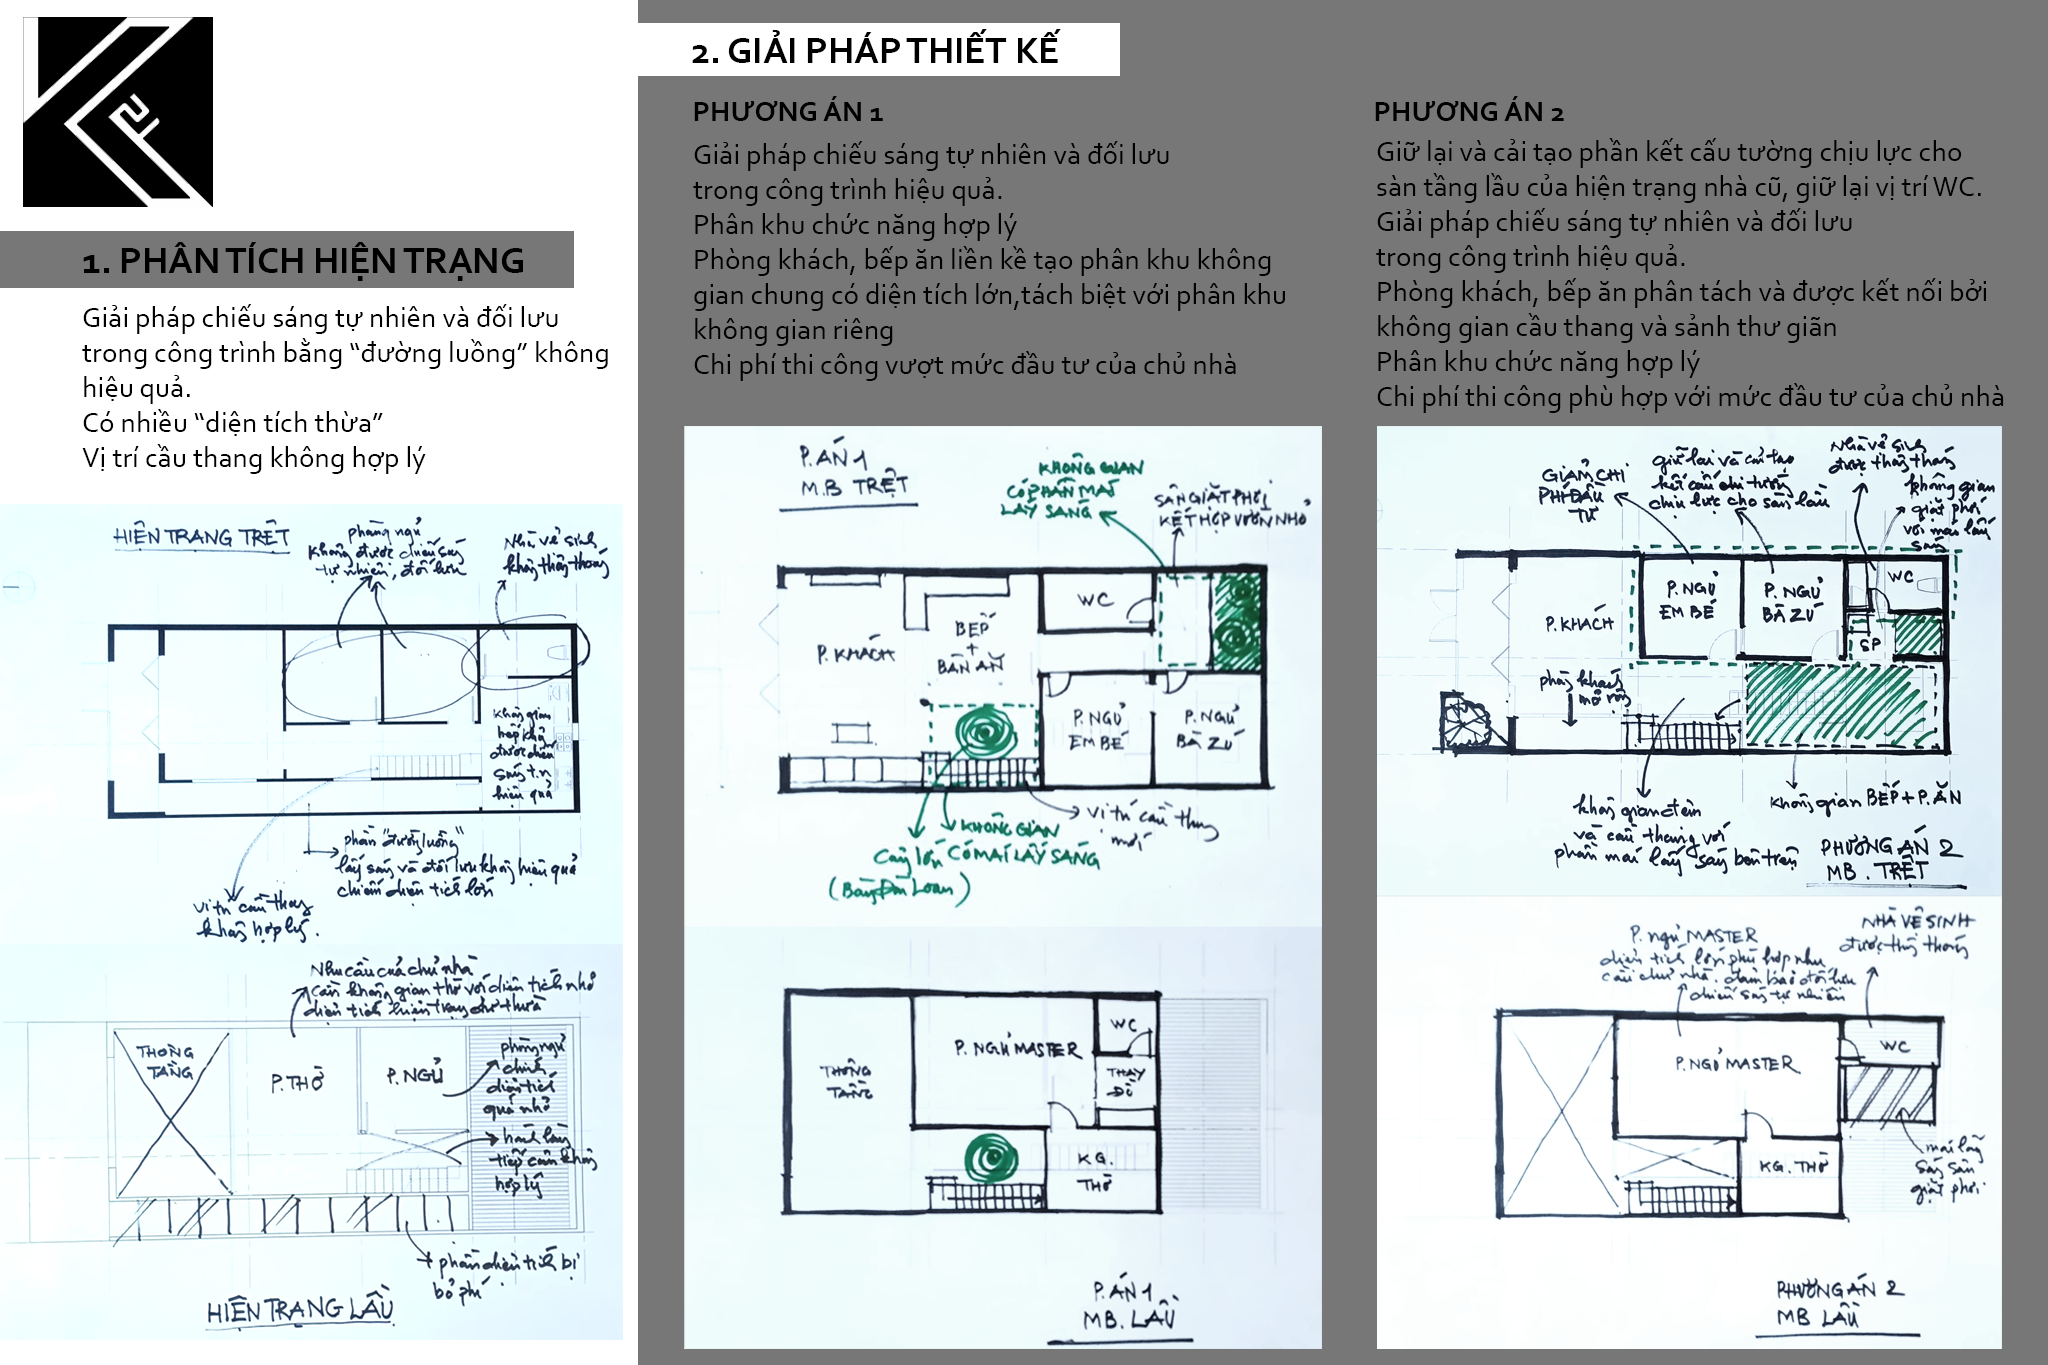 1. PHÂN TÍCH HIỆN TRẠNG
Giải pháp chiếu sáng tự nhiên và đối lưu
trong công trình bằng “đường luồng” không
hiệu quả.
Có nhiều “diện tích thừa”
Vị trí cầu thang không hợp lý
HIỆN TRẠNG TRỆT
phòng ngủ
không được chiếu sáng
tự nhiên, đối lưu
Nhà vệ sinh
không thông thoáng
không gian
bếp không
được chiếu
sáng t.n
hiệu quả
phần "đường luồng"
lấy sáng và đối lưu không hiệu quả
chiếm diện tích lớn
vị trí cầu thang
không hợp lý.
Nhu cầu của chủ nhà
cần không gian thờ với diện tích nhỏ
diện tích hiện trạng dư thừa
THÔNG
TẦNG
P.THỜ
P.NGỦ
phòng ngủ
chính
diện tích
quá nhỏ
hành lang
tiếp cận không
hợp lý
phần diện tích bị
bỏ phí
HIỆN TRẠNG LẦU
2. GIẢI PHÁP THIẾT KẾ
PHƯƠNG ÁN 1
Giải pháp chiếu sáng tự nhiên và đối lưu
trong công trình hiệu quả.
Phân khu chức năng hợp lý
Phòng khách, bếp ăn liền kề tạo phân khu không
gian chung có diện tích lớn,tách biệt với phân khu
không gian riêng
Chi phí thi công vượt mức đầu tư của chủ nhà
P.ÁN 1
M.B TRỆT
KHÔNG GIAN
CÓ PHẦN MÁI
LẤY SÁNG
SÂN GIẶT PHƠI
KẾT HỢP VƯỜN NHỎ
WC
P. KHÁCH
BẾP
+
BÀN ĂN
P. NGỦ
EM BÉ
P. NGỦ
BÀ ZÚ
vị trí cầu thang
mới
KHÔNG GIAN
CÓ MÁI LẤY SÁNG
Cây lớn
(Bàng Đài Loan)
THÔNG
TẦNG
P. NGỦ MASTER
WC
THAY
ĐỒ
KG.
THỜ
P.ÁN 1
MB. LẦU
PHƯƠNG ÁN 2
Giữ lại và cải tạo phần kết cấu tường chịu lực cho
sàn tầng lầu của hiện trạng nhà cũ, giữ lại vị trí WC.
Giải pháp chiếu sáng tự nhiên và đối lưu
trong công trình hiệu quả.
Phòng khách, bếp ăn phân tách và được kết nối bởi
không gian cầu thang và sảnh thư giãn
Phân khu chức năng hợp lý
Chi phí thi công phù hợp với mức đầu tư của chủ nhà
GIẢM CHI
PHÍ ĐẦU
TƯ
giữ lại và cải tạo
kết cấu tường
chịu lực cho sàn lầu
Nhà vệ sinh
được thông thoáng
không gian
giặt phơi
với mái lấy
sáng
P. KHÁCH
P. NGỦ
EM BÉ
P. NGỦ
BÀ ZÚ
WC
SP
phòng khách
mở rộng
không gian đệm
và cầu thang với
phần mái lấy sáng bên trên
không gian BẾP + P. ĂN
PHƯƠNG ÁN 2
MB. TRỆT
P. ngủ MASTER
diện tích lớn phù hợp nhu
cầu chủ nhà. đảm bảo đối lưu
chiếu sáng tự nhiên
NHÀ VỆ SINH
được thông thoáng
P. NGỦ MASTER
WC
KG. THỜ
mái lấy
sáng sân
giặt phơi
PHƯƠNG ÁN 2
MB LẦU